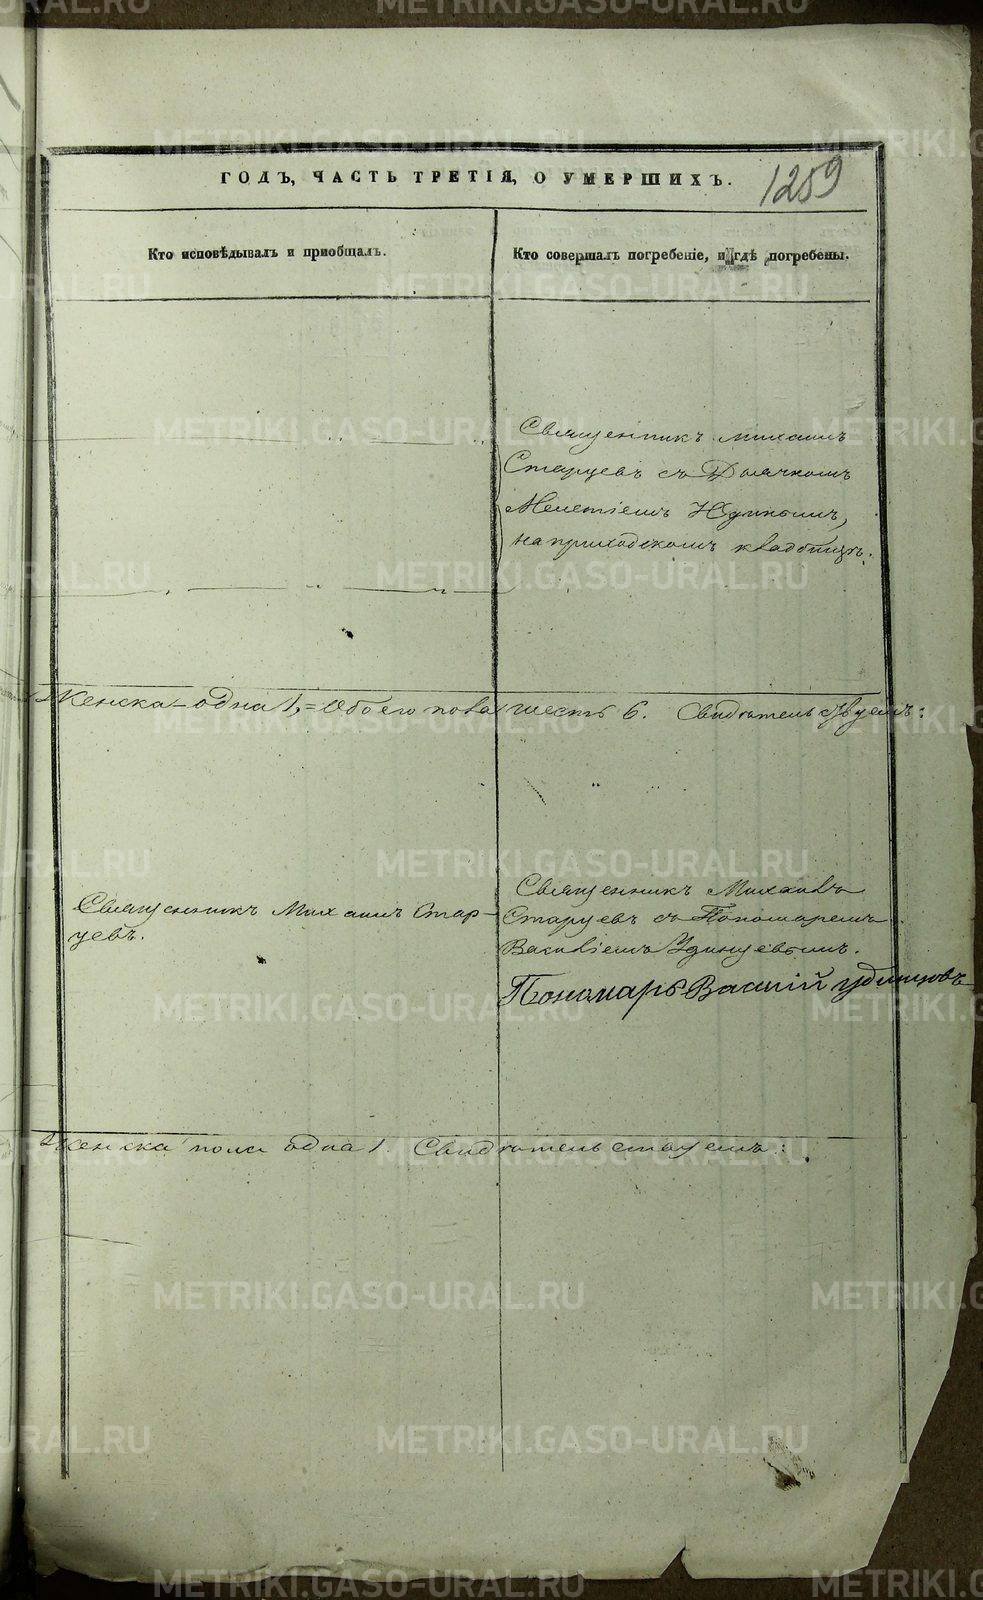 ГОДЪ, ЧАСТЬ ТРЕТІЯ, О УМЕРШИХЪ.
1259
Кто исповѣдывалъ и пріобщалъ.
Кто совершалъ погребеніе, и гдѣ погребены.
Священникъ Михаилъ
Старцевъ съ Дьячкомъ
Мелетіемъ
на приходскомъ кладбищѣ.
Женска одна 1, = Обоего пола шесть 6. Свидѣтельствуемъ:
Священникъ Михаилъ Стар-
цевъ.
Священникъ Михаилъ
Старцевъ съ Пономаремъ
Василіемъ Удинцевымъ.
Пономарь Василій Удинцовъ
Женска пола одна 1. Свидѣтельствуемъ:
METRIKI.GASO-URAL.RU